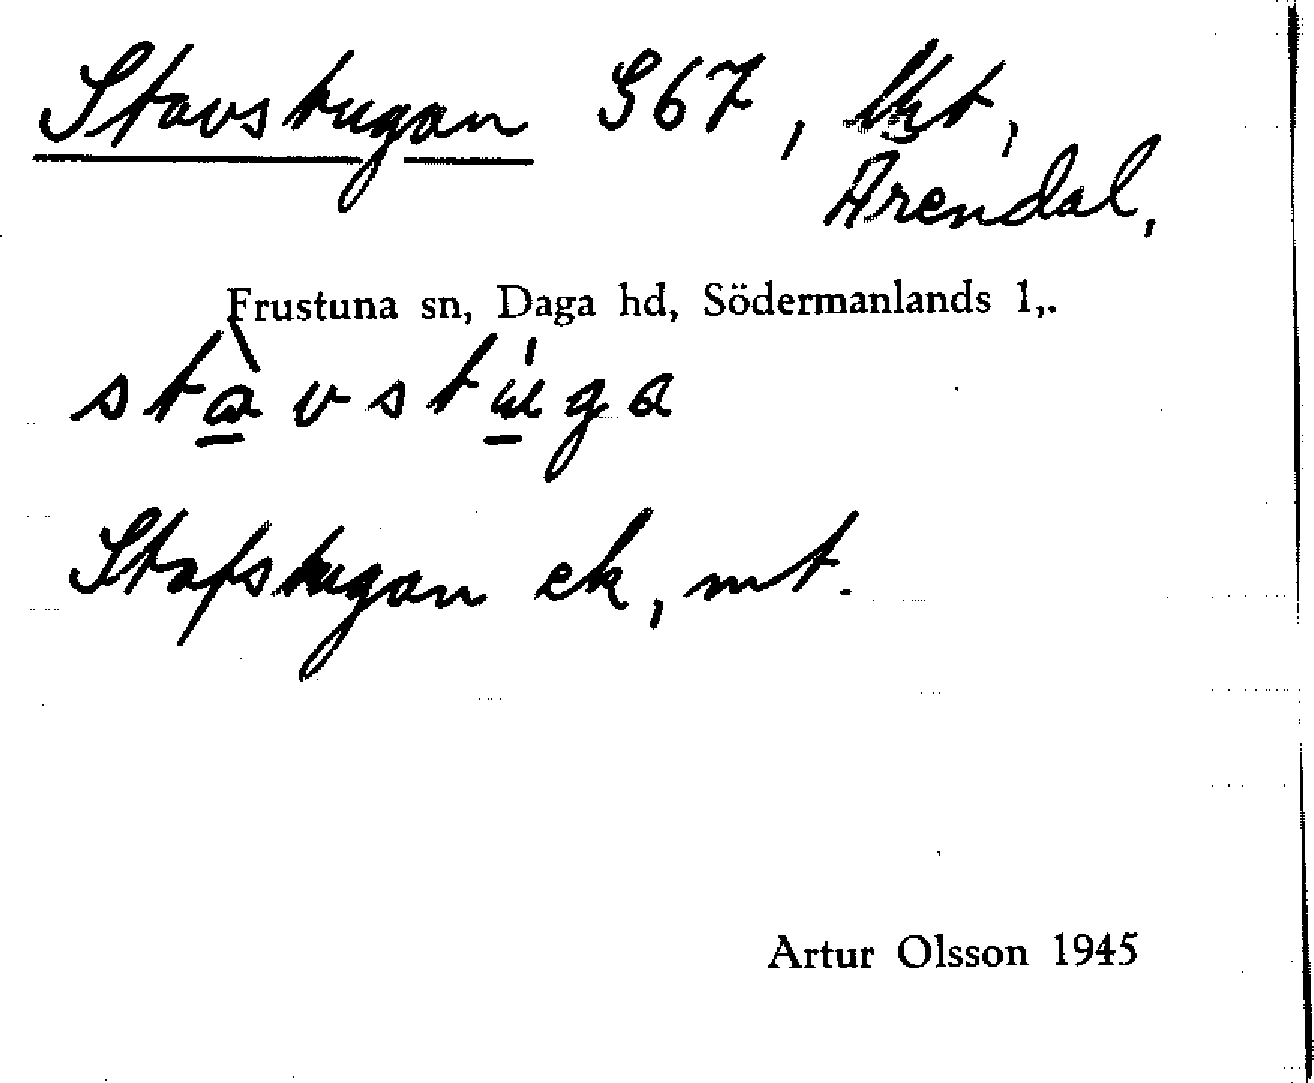 Stavstugan S67, lht,
Årendal,
Frustuna sn, Daga hd, Södermanlands l,.
stàvstúga
Stafstugan ek, mt.
Artur Olsson 1945